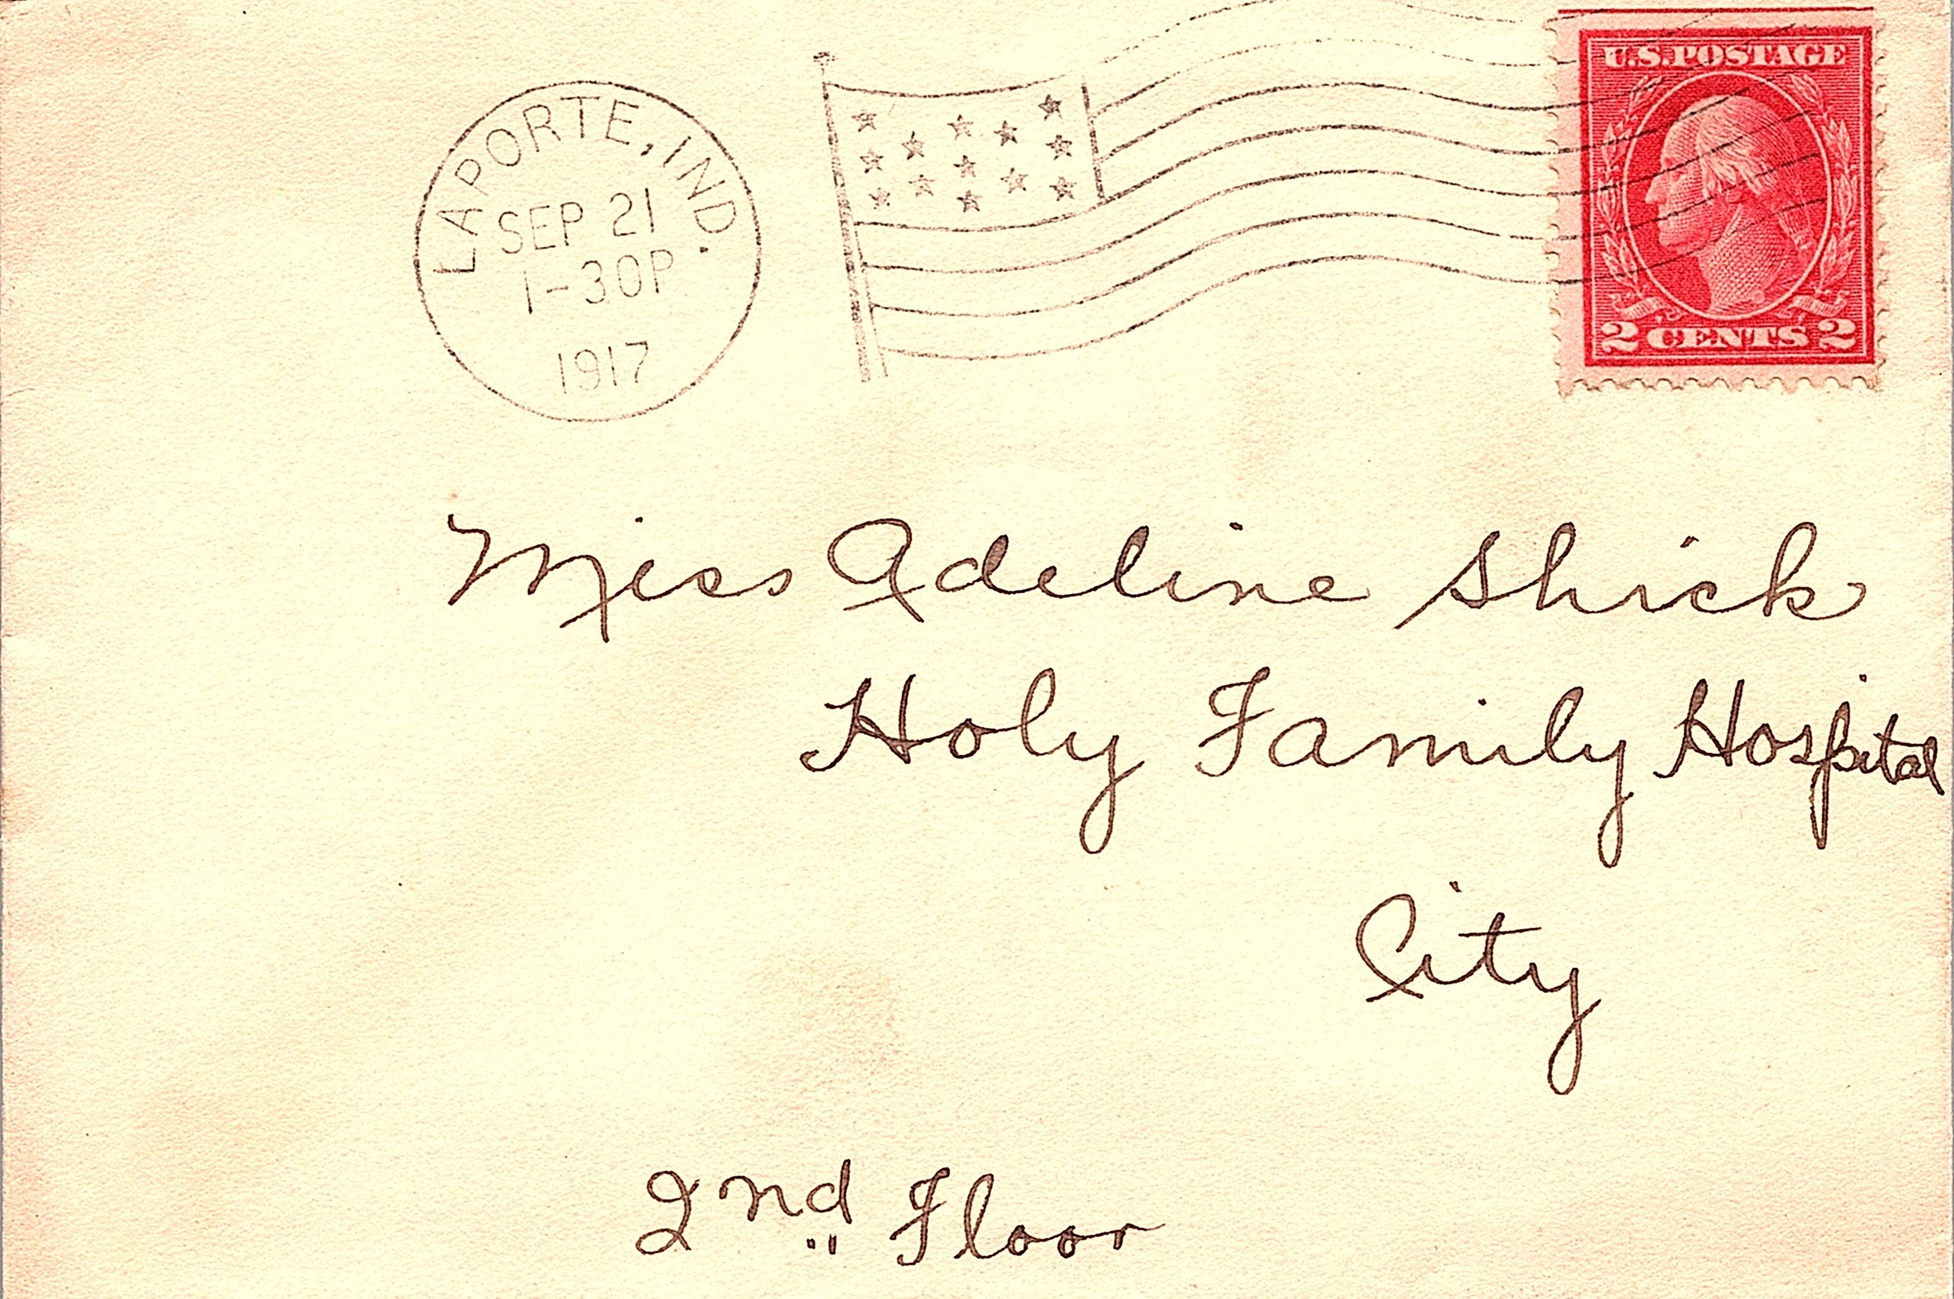 LAPORTE, IND.
SEP 21
1-30P
1917
U.S. POSTAGE
2 CENTS 2
Miss Adeline Shick
Holy Family Hospital
City
2nd Floor